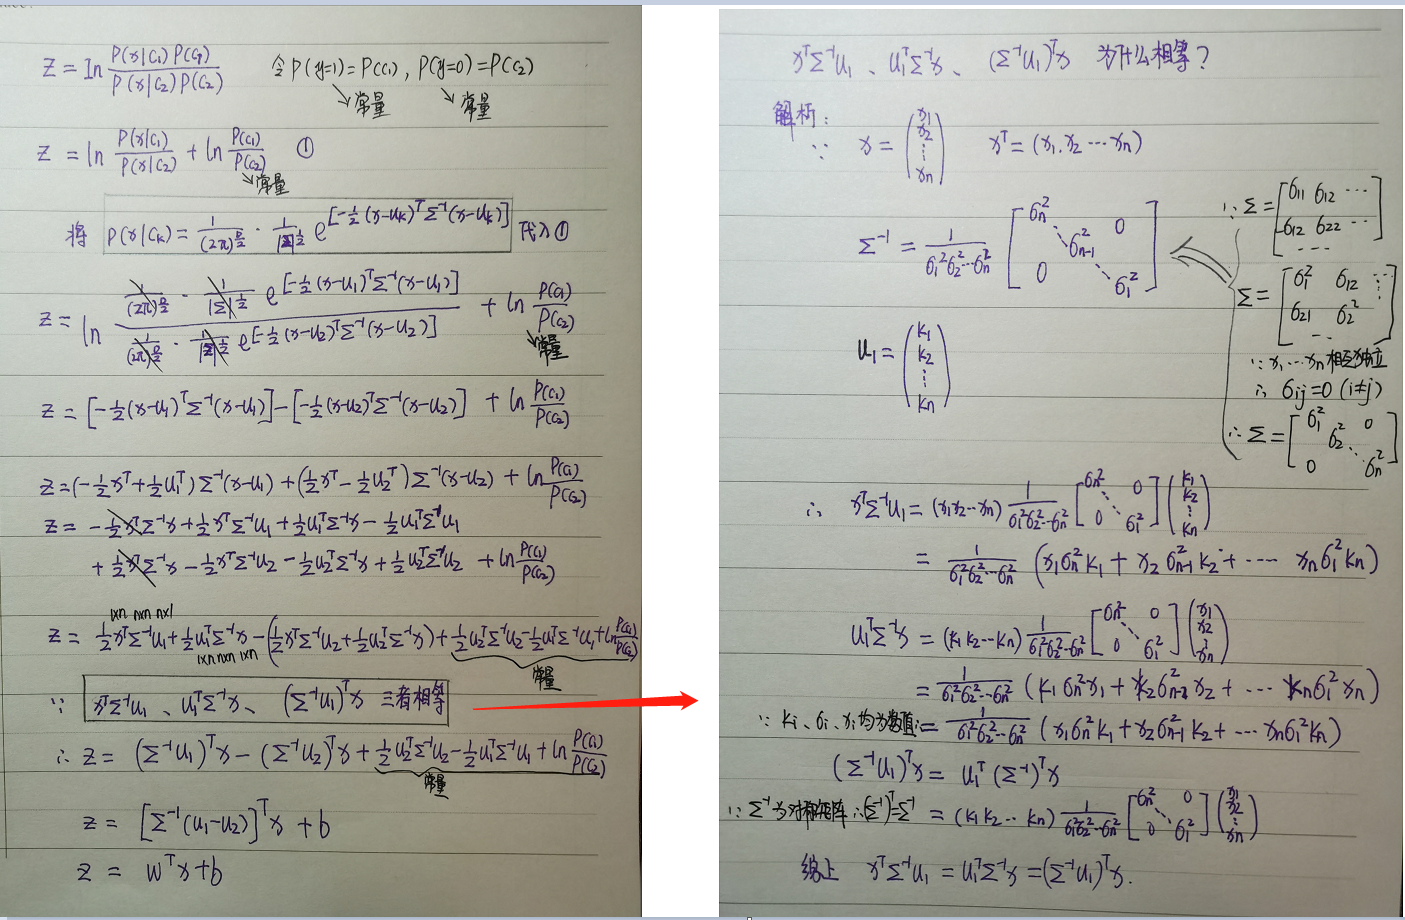 Z = ln P(x|C₁)P(C₁) / P(x|C₂)P(C₂) 令 P(y=1)=P(C₁), P(y=0)=P(C₂)
↘常量 ↘常量
Z = ln P(x|C₁)/P(x|C₂) + ln P(C₁)/P(C₂) ①
↘常量
将 P(x|Cₖ) = 1/(2π)^(D/2) · 1/|Σ|^(1/2) e^[-½(x-uₖ)ᵀΣ⁻¹(x-uₖ)] 代入①
Z = ln (1/(2π)^(D/2) · 1/|Σ|^(1/2) e^[-½(x-u₁)ᵀΣ⁻¹(x-u₁)]) / (1/(2π)^(D/2) · 1/|Σ|^(1/2) e^[-½(x-u₂)ᵀΣ⁻¹(x-u₂)]) + ln P(C₁)/P(C₂)
↘常量
Z = [-½(x-u₁)ᵀΣ⁻¹(x-u₁)] - [-½(x-u₂)ᵀΣ⁻¹(x-u₂)] + ln P(C₁)/P(C₂)
Z = (-½xᵀ+½u₁ᵀ)Σ⁻¹(x-u₁) + (½xᵀ-½u₂ᵀ)Σ⁻¹(x-u₂) + ln P(C₁)/P(C₂)
Z = -½xᵀΣ⁻¹x + ½xᵀΣ⁻¹u₁ + ½u₁ᵀΣ⁻¹x - ½u₁ᵀΣ⁻¹u₁
+ ½xᵀΣ⁻¹x - ½xᵀΣ⁻¹u₂ - ½u₂ᵀΣ⁻¹x + ½u₂ᵀΣ⁻¹u₂ + ln P(C₁)/P(C₂)
1xn nxn nx1
Z = ½xᵀΣ⁻¹u₁ + ½u₁ᵀΣ⁻¹x - (½xᵀΣ⁻¹u₂ + ½u₂ᵀΣ⁻¹x) + ½u₂ᵀΣ⁻¹u₂ - ½u₁ᵀΣ⁻¹u₁ + ln P(C₁)/P(C₂)
1xn nxn 1xn
常量
∵ xᵀΣ⁻¹u₁、u₁ᵀΣ⁻¹x、(Σ⁻¹u₁)ᵀx 三者相等
∴ Z = (Σ⁻¹u₁)ᵀx - (Σ⁻¹u₂)ᵀx + ½u₂ᵀΣ⁻¹u₂ - ½u₁ᵀΣ⁻¹u₁ + ln P(C₁)/P(C₂)
常量
Z = [Σ⁻¹(u₁-u₂)]ᵀx + b
Z = wᵀx+b
xᵀΣ⁻¹u₁、u₁ᵀΣ⁻¹x、(Σ⁻¹u₁)ᵀx 为什么相等?
解析:
∵ x = (x₁ x₂ ⋮ xₙ) xᵀ = (x₁.x₂ ⋯ xₙ)
Σ⁻¹ = 1/(б₁²б₂²⋯бₙ²) [бₙ² бₙ₋₁² ⋱ б₁² 0 0]
∵ Σ = [б₁₁ б₁₂ ⋯ б₁₂ б₂₂ ⋯ ⋯]
Σ = [б₁² б₁₂ ⋮ б₂₁ б₂² ⋯]
∵ x₁⋯xₙ相互独立
∴ бij=0 (i≠j)
∴ Σ = [б₁² б₂² ⋱ бₙ² 0 0]
u₁ = (k₁ k₂ ⋮ kₙ)
∴ xᵀΣ⁻¹u₁ = (x₁x₂⋯xₙ) 1/(б₁²б₂²⋯бₙ²) [бₙ² 0 ⋱ 0 б₁²] (k₁ k₂ ⋮ kₙ)
= 1/(б₁²б₂²⋯бₙ²) (x₁бₙ²k₁ + x₂бₙ₋₁²k₂ + ⋯ xₙб₁²kₙ)
u₁ᵀΣ⁻¹x = (k₁k₂⋯kₙ) 1/(б₁²б₂²⋯бₙ²) [бₙ² 0 ⋱ 0 б₁²] (x₁ x₂ ⋮ xₙ)
= 1/(б₁²б₂²⋯бₙ²) (k₁бₙ²x₁ + k₂бₙ₋₁²x₂ + ⋯ kₙб₁²xₙ)
∵ ki、бi、xi均为数值∴ = 1/(б₁²б₂²⋯бₙ²) (x₁бₙ²k₁ + x₂бₙ₋₁²k₂ + ⋯ xₙб₁²kₙ)
(Σ⁻¹u₁)ᵀx = u₁ᵀ(Σ⁻¹)ᵀx
∵ Σ⁻¹为对称矩阵∴(Σ⁻¹)ᵀ=Σ⁻¹ = (k₁k₂⋯kₙ) 1/(б₁²б₂²⋯бₙ²) [бₙ² 0 ⋱ 0 б₁²] (x₁ x₂ ⋮ xₙ)
综上 xᵀΣ⁻¹u₁ = u₁ᵀΣ⁻¹x = (Σ⁻¹u₁)ᵀx.